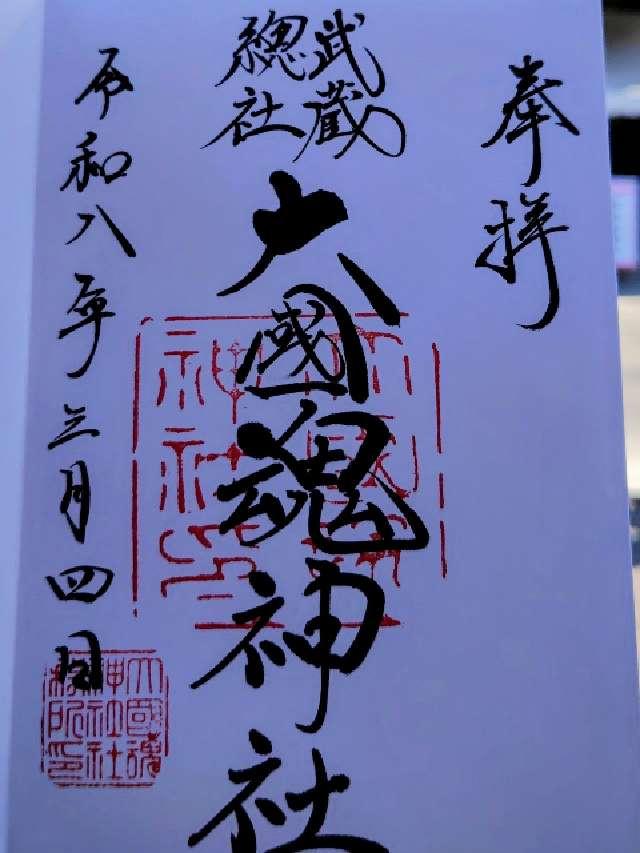 奉拝
武蔵
總社
大國魂神社
令和八年三月四日
大國魂
神社社
務所印